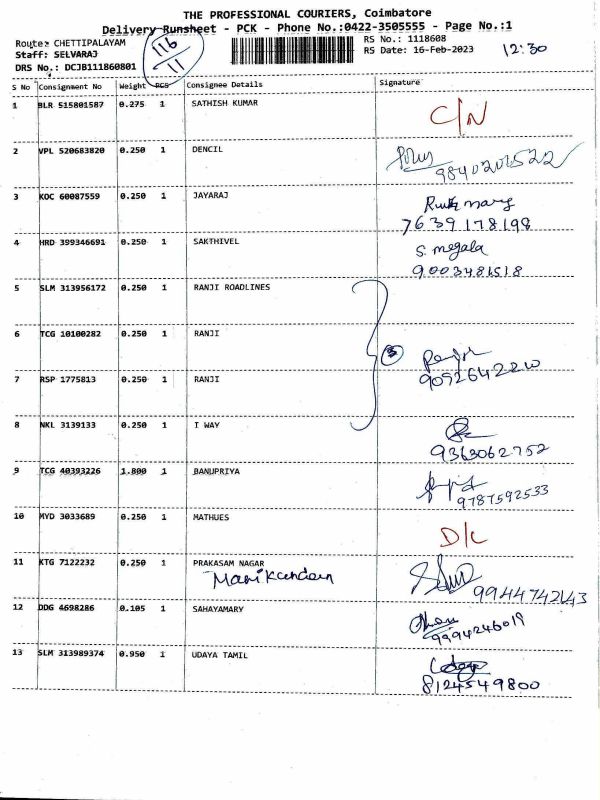 THE PROFESSIONAL COURIERS, Coimbatore
Delivery Runsheet - PCK - Phone No.:0422-3505555 - Page No.:1
Route: CHETTIPALAYAM
116
11
RS No.: 1118608
12:30
Staff: SELVARAJ
RS Date: 16-Feb-2023
DRS No.: DCJB111860801
S No Consignment No Weight PCS Consignee Details Signature
1 BLR 515801587 0.275 1 SATHISH KUMAR C/N
2 VPL 520683820 0.250 1 DENCIL
9840206522
3 KOC 60087559 0.250 1 JAYARAJ
mary
7639178198
4 HRD 399346691 0.250 1 SAKTHIVEL S. megala
9003481518
5 SLM 313956172 0.250 1 RANJI ROADLINES
6 TCG 10100282 0.250 1 RANJI
3
7 RSP 1775813 0.250 1 RANJI 9092642220
8 NKL 3139133 0.250 1 I WAY
9363062752
9 TCG 40393226 1.800 1 BANUPRIYA
9787592533
10 MYD 3033689 0.250 1 MATHUES
D/L
11 KTG 7122232 0.250 1 PRAKASAM NAGAR
Manikandan
9944742143
12 DDG 4698286 0.105 1 SAHAYAMARY
9994246019
13 SLM 313989374 0.950 1 UDAYA TAMIL
8124549800